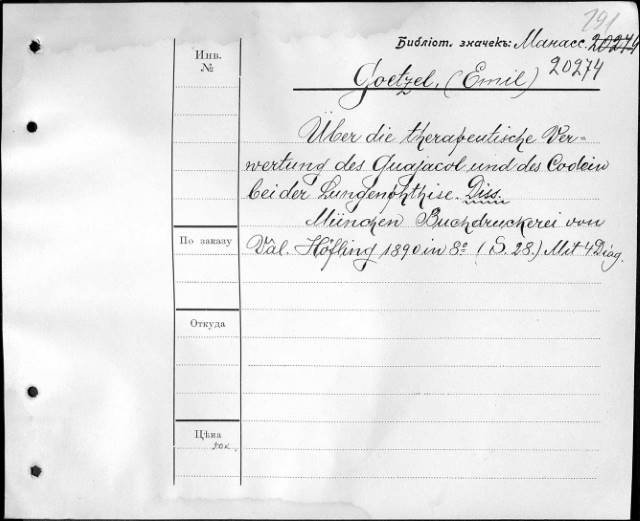 191
Библіот. значекъ: Манасс. 20274
20274
Инв.
№
Goetzel, (Emil)
Über die therapeutische Ver-
wertung des Guajacol und des Codein
bei der Lungenphthise. Diss.
München Buchdruckerei von
Val. Höfling 1890 in 8º (S. 28.) Mit 4 Diag.
По заказу
Откуда
Цѣна
20к.